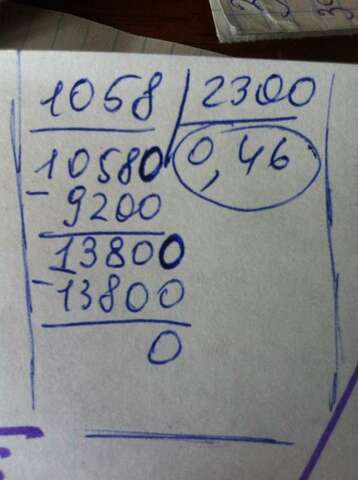 1058 2300
10580 0,46
- 9200
13800
- 13800
0